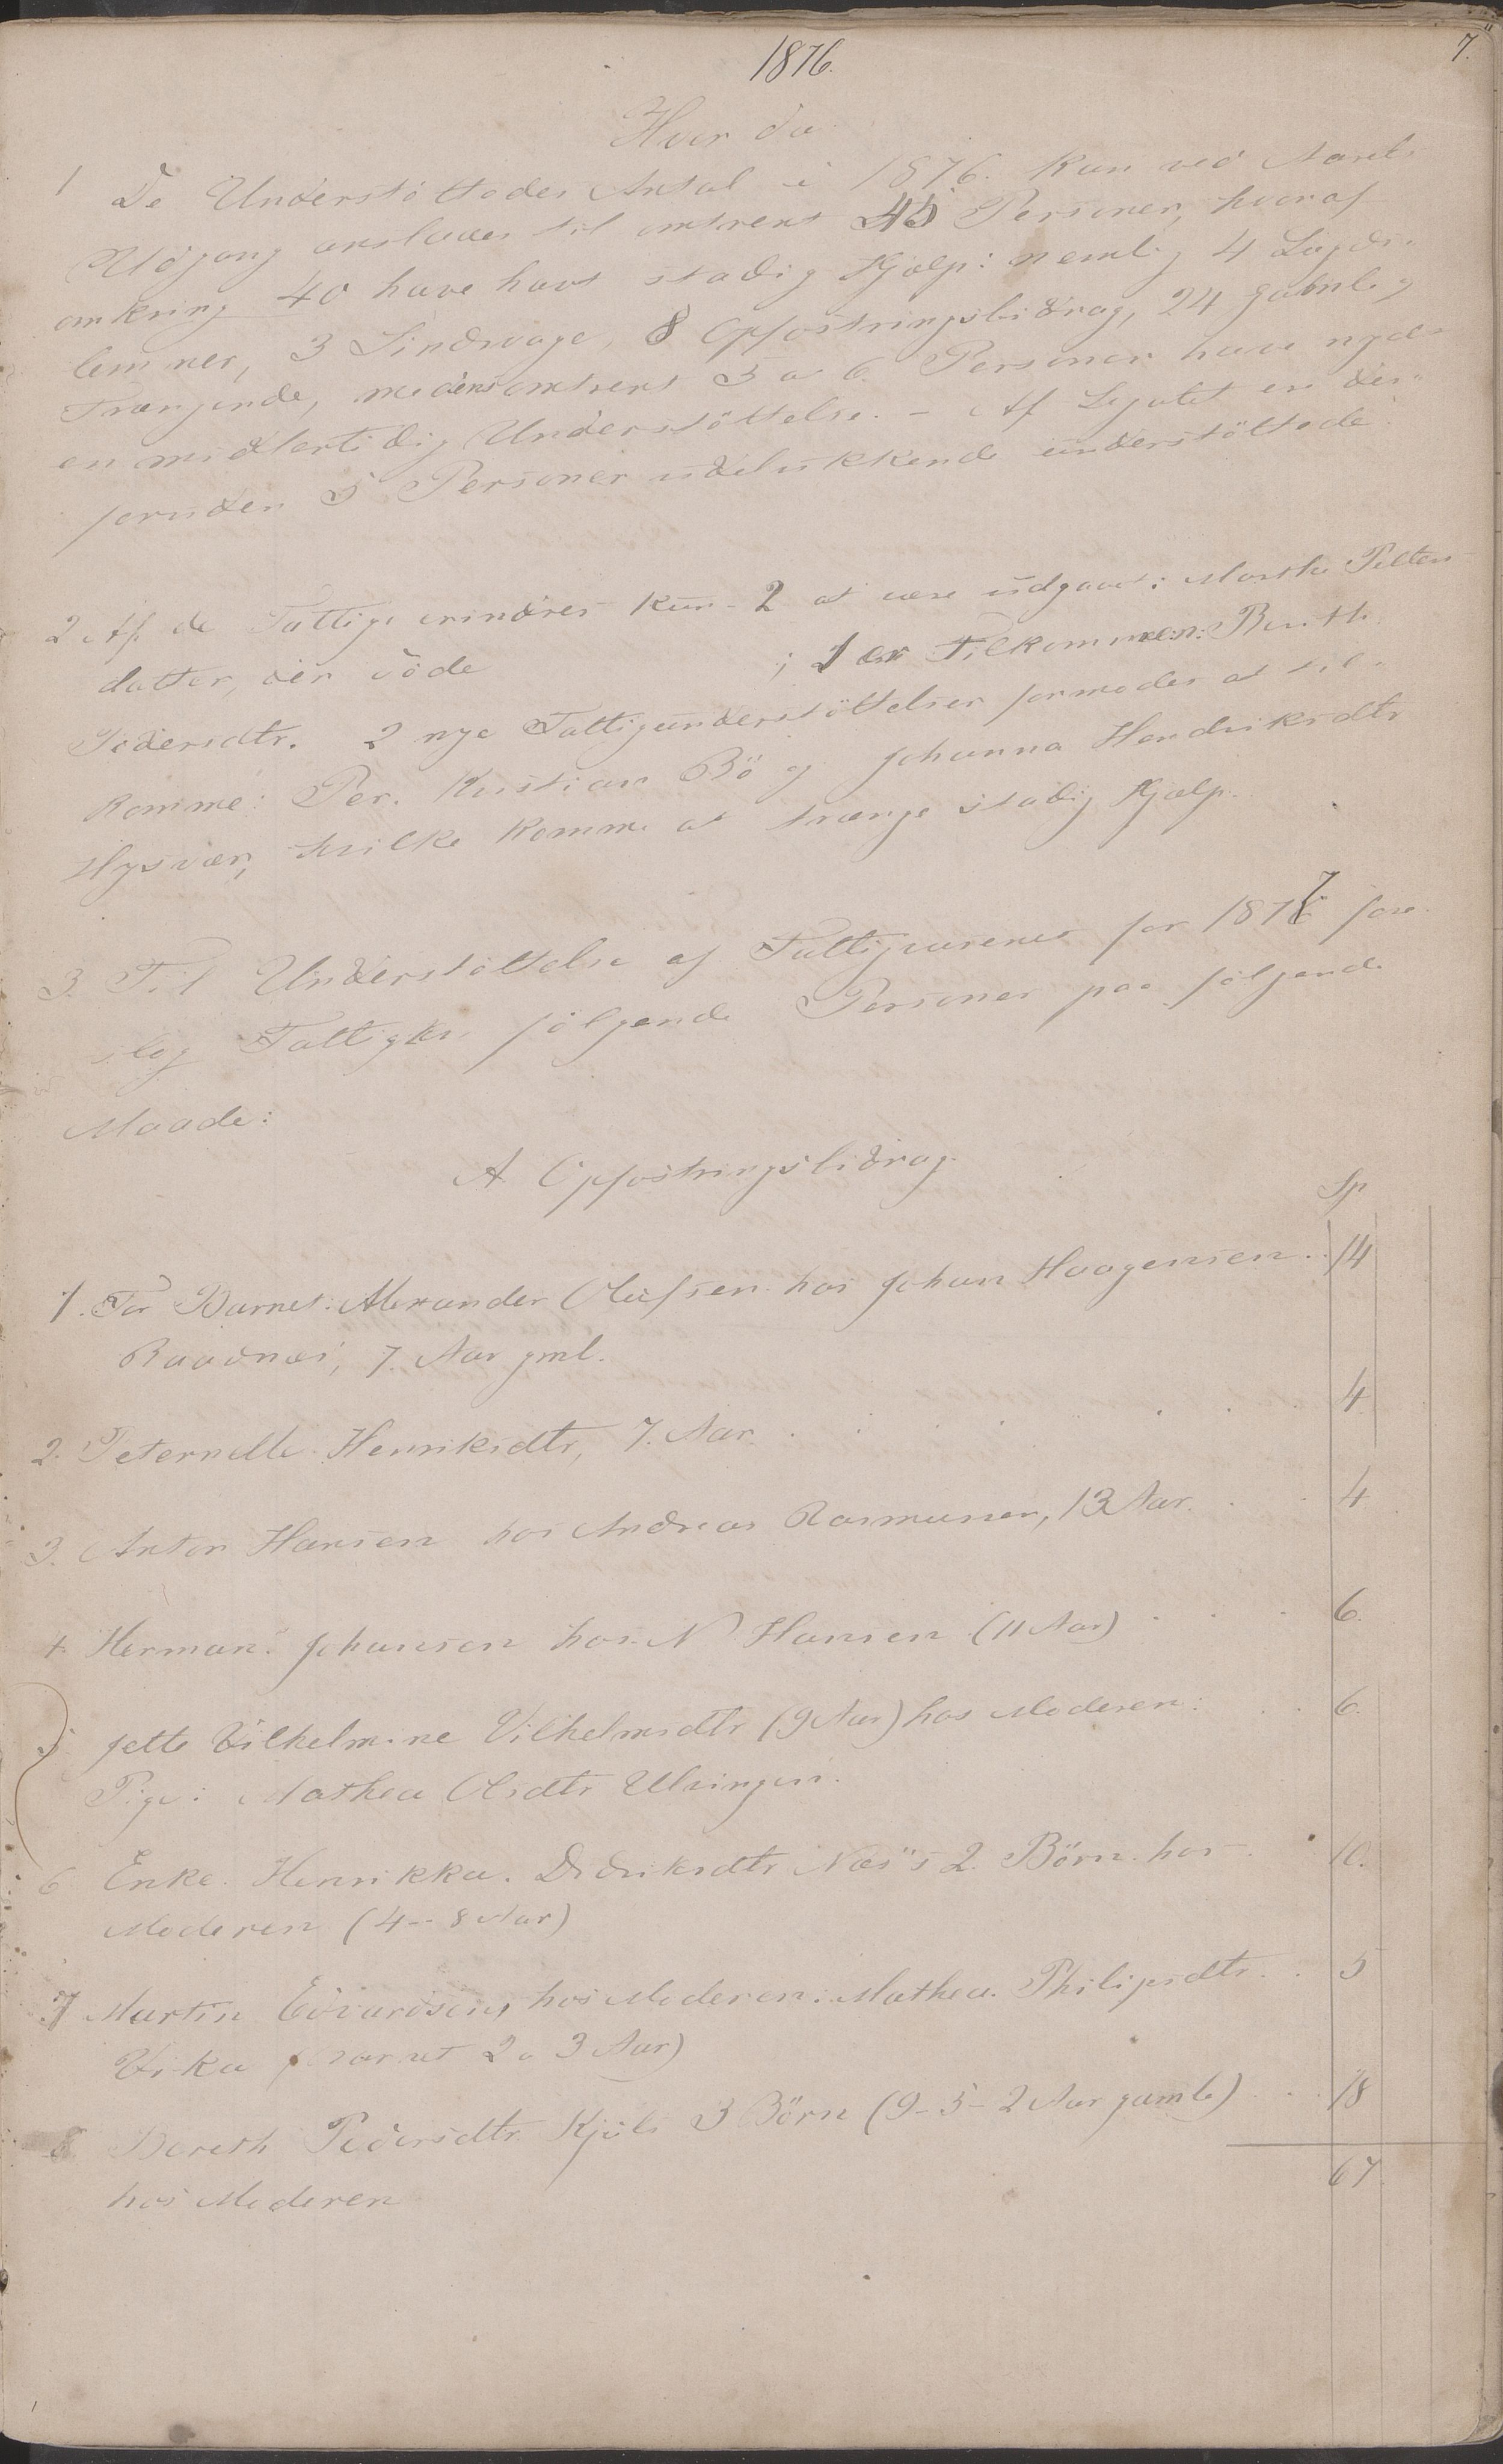 7.
1876.
Hvor da
1 De Understöttedes Antal i 1876 kan ved Aarets
Udgang anslaaes til omtrent 45 Personer, hvoraf
omkring 40 have havt stadig Hjælp: nemlig 4 Lægds-
lemmer, 3 Sindsvage, 8 Opfostringsbidrag, 24 gamle og
Trængende, medens omtrent 5 a 6 Personer have nydt
en midlertidig Understöttelse. - Af Legatet er der-
foruden 5 Personer udelukkende understöttede.
2 Af de Fattige erindres kun 2 at være udgaaet: Marthe Peters
datter, der döde ; 1 er Tilkommen: Berith
Pedersdtr. 2 nye Fattigunderstöttelser formodes at til-
komme: Per. Kristian Bö og Johanna Hendriksdtr
Hysvær, hvilke komme at trænge stadig Hjælp.
3. Til Understöttelse af Fattigvæsenet for 1877 fore-
slog Fattigk. følgende Personer paa følgende
Maade:
A. Opfostringsbidrag.
Sp
1. For Barnet: Alexander Olufsen hos Johan Haagensen . . 14
Raadnes, 7. Aar gml.
2. Peternelle Henriksdtr, 7. Aar . . . . 4
3. Anton Hansen hos Andreas Rasmussen, 13 Aar. . . 4
4. Herman Johansen hos N Hansen (11 Aar) . . . 6.
5. Jette Vilhelmine Vilhelmsdtr (9 Aar) hos Moderen: . . 6.
Pige: Mathea Olsdtr Ulvingen.
6 Enke Henrikka Didriksdtr Næs's 2 Börn hos . 10.
Moderen (4 - 8 Aar)
7 Martin Edvardsen, hos Moderen: Mathea Philipsdtr . . 5
Vika (Barnet 2 a 3 Aar)
8 Bereth Pedersdtr Kjöls 3 Börn (9 - 5 - 2 Aar gamle) . . . 18
hos Moderen
67